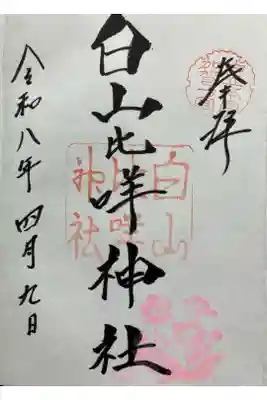 奉拝
白山比咩神社
白山比咩神社
令和八年四月九日